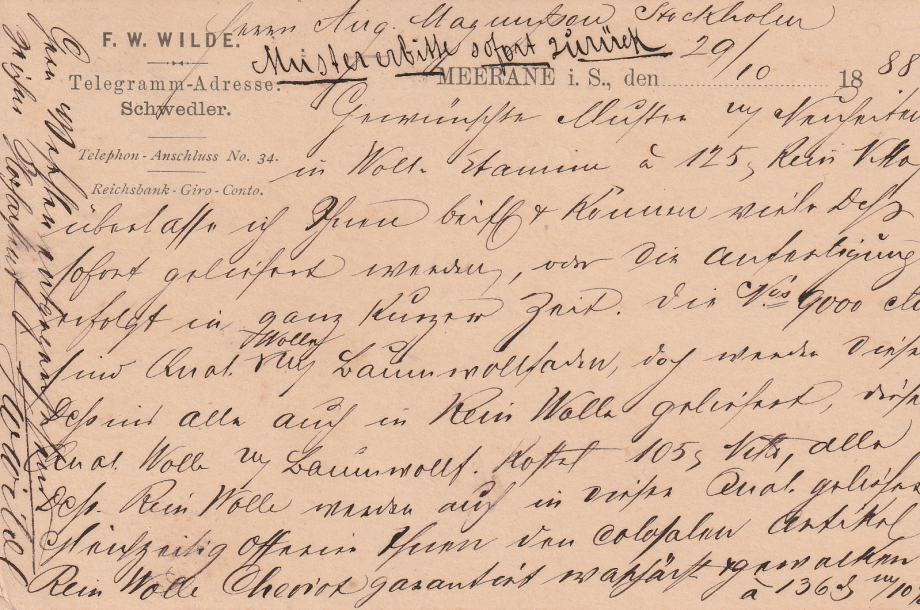 Herrn Aug. Magnusson Stockholm
F. W. WILDE.
Muster erbitte sofort zurück
Telegramm-Adresse:
Schwedler.
MEERANE i. S., den 29/10 1888
Telephon-Anschluss No. 34.
Reichsbank-Giro-Conto.
Gewünschte Muster in Neuheiten
in Woll. Etamine à 125 Rein Netto
überlasse ich Ihnen & können viele Dess
sofort geliefert werden, oder die Anfertigung
erfolgt in ganz kurzer Zeit. Die Nos 9000
sind Qual. Wolle Baumwollfaden, doch werden diese
Dessins alle auch in Rein Wolle geliefert, diese
Qual. Wolle Baumwollf. kostet 105 Netto, alle
Dess. Rein Wolle werden auch in dieser Qual. geliefert
Gleichzeitig offerire Ihnen den colossalen Artikel
Rein Wolle Cheviot garantirt waschächt & gewalken
à 136
F W Wilde